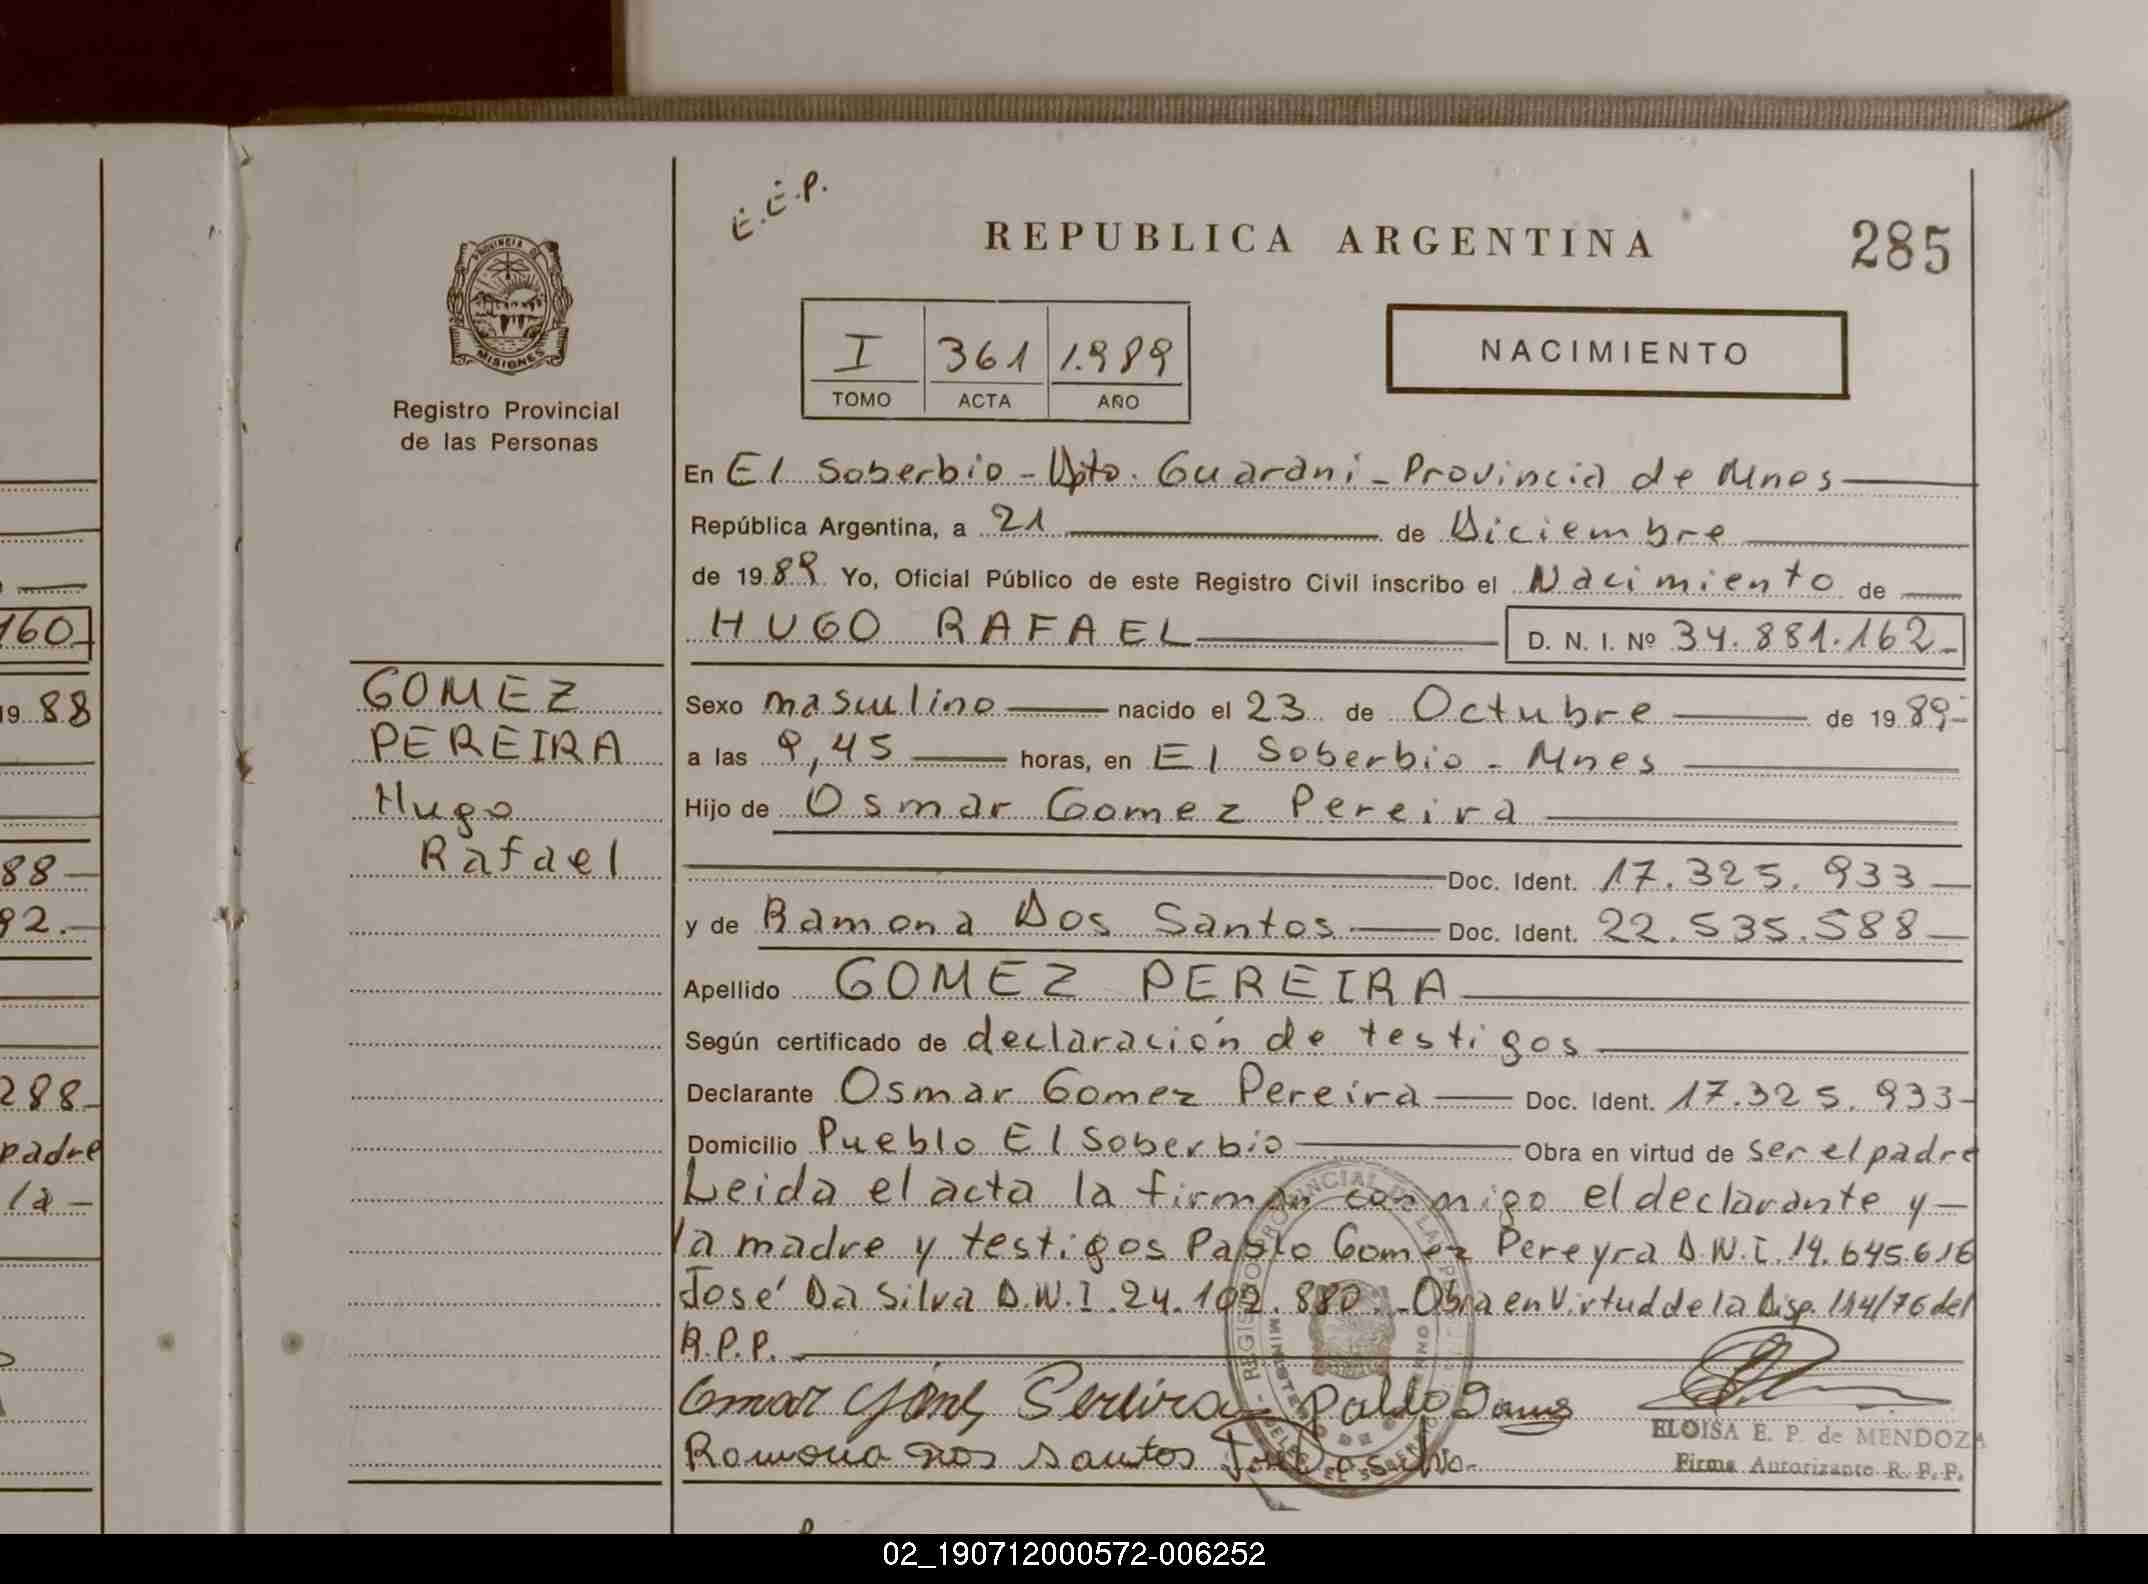 E.C.P.
REPUBLICA ARGENTINA
285
PROVINCIA DE
MISIONES
Registro Provincial
de las Personas
I 361 1.989
TOMO ACTA AÑO
NACIMIENTO
En El Soberbio - Dpto. Guarani - Provincia de Mnes
República Argentina, a 21 de Diciembre
de 1989 Yo, Oficial Público de este Registro Civil inscribo el Nacimiento de
HUGO RAFAEL D. N. I. Nº 34.881.162
GOMEZ
PEREIRA
Hugo
Rafael
Sexo masculino nacido el 23 de Octubre de 1989
a las 9,45 horas, en El Soberbio - Mnes
Hijo de Osmar Gomez Pereira
Doc. Ident. 17.325.933
y de Ramona Dos Santos Doc. Ident. 22.535.588
Apellido GOMEZ PEREIRA
Según certificado de declaración de testigos
Declarante Osmar Gomez Pereira Doc. Ident. 17.325.933
Domicilio Pueblo El Soberbio Obra en virtud de ser el padre
Leida el acta la firman conmigo el declarante y
la madre y testigos Pablo Gomez Pereyra D.N.I. 14.645.616
José Da Silva D.N.I. 24.102.880. - Obra en Virtud de la Disp. 114/76 del
R.P.P.
Pereira Pablo
Ramona dos santos
ELOISA E. P. de MENDOZA
Firma Autorizante R. P. P.
160
19 88
88
92.
288
padre
la
02_190712000572-006252